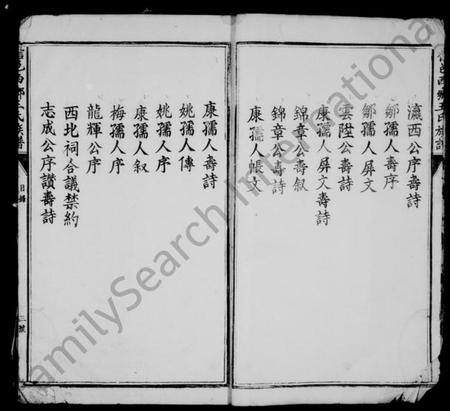 瀛西公序壽詩
鄒孺人壽序
鄒孺人屏文
雲陞公壽詩
康孺人屏文壽詩
錦章公壽叙
錦章公壽詩
康孺人帳文
康孺人壽詩
姚孺人傳
姚孺人序
康孺人叙
梅孺人序
龍輝公序
西北祠合議禁約
志成公序讚壽詩
信邑西鄉王氏族譜
目錄
FamilySearch International